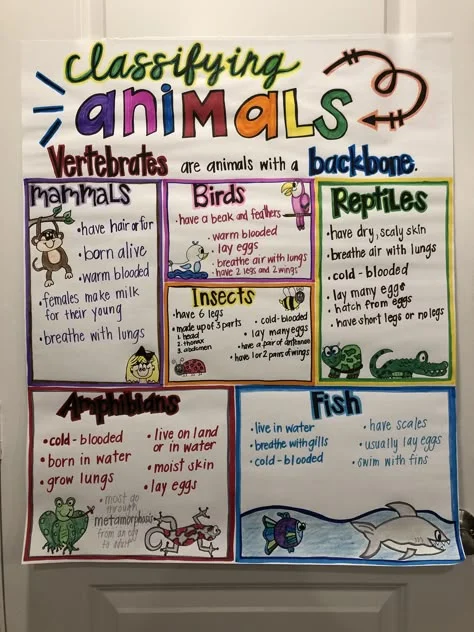 classifying
animals
Vertebrates are animals with a backbone.
mammals
• have hair or fur
• born alive
• warm blooded
• females make milk
for their young
• breathe with lungs
Birds
• have a beak and feathers
• warm blooded
• lay eggs
• breathe air with lungs
• have 2 legs and 2 wings
Insects
• have 6 legs
• made up of 3 parts
1. head
2. thorax
3. abdomen
• cold-blooded
• lay many eggs
• have a pair of antennae
• have 1 or 2 pairs of wings
Reptiles
• have dry, scaly skin
• breathe air with lungs
• cold-blooded
• lay many eggs
• hatch from eggs
• have short legs or no legs
Amphibians
• cold-blooded
• born in water
• grow lungs
• live on land
or in water
• moist skin
• lay eggs
• most go
through
metamorphosis
from an egg
to adult
Fish
• live in water
• breathe with gills
• cold-blooded
• have scales
• usually lay eggs
• swim with fins